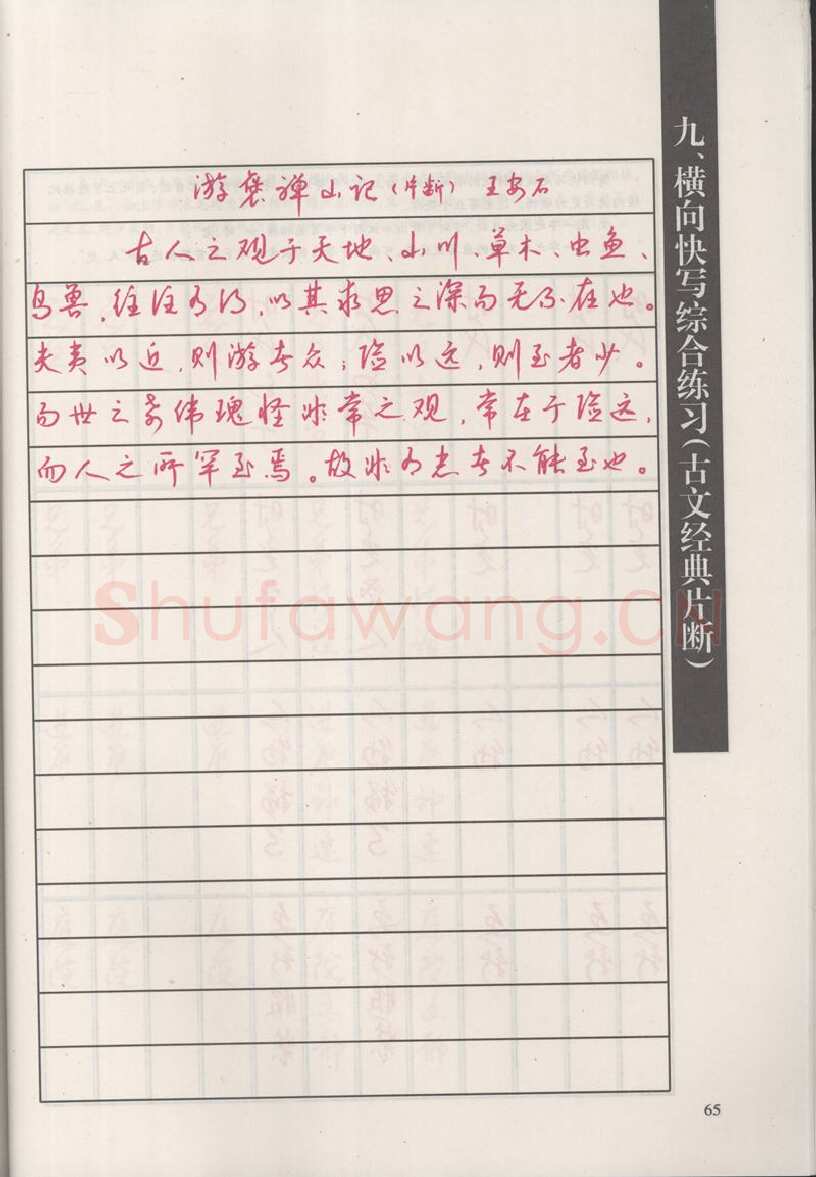 九、横向快写综合练习(古文经典片断)
游褒禅山记(片断) 王安石
古人之观于天地、山川、草木、虫鱼、
鸟兽,往往有得,以其求思之深而无不在也。
夫夷以近,则游者众;险以远,则至者少。
而世之奇伟瑰怪非常之观,常在于险远,
而人之所罕至焉。故非有志者不能至也。
Shufawang.cn
65